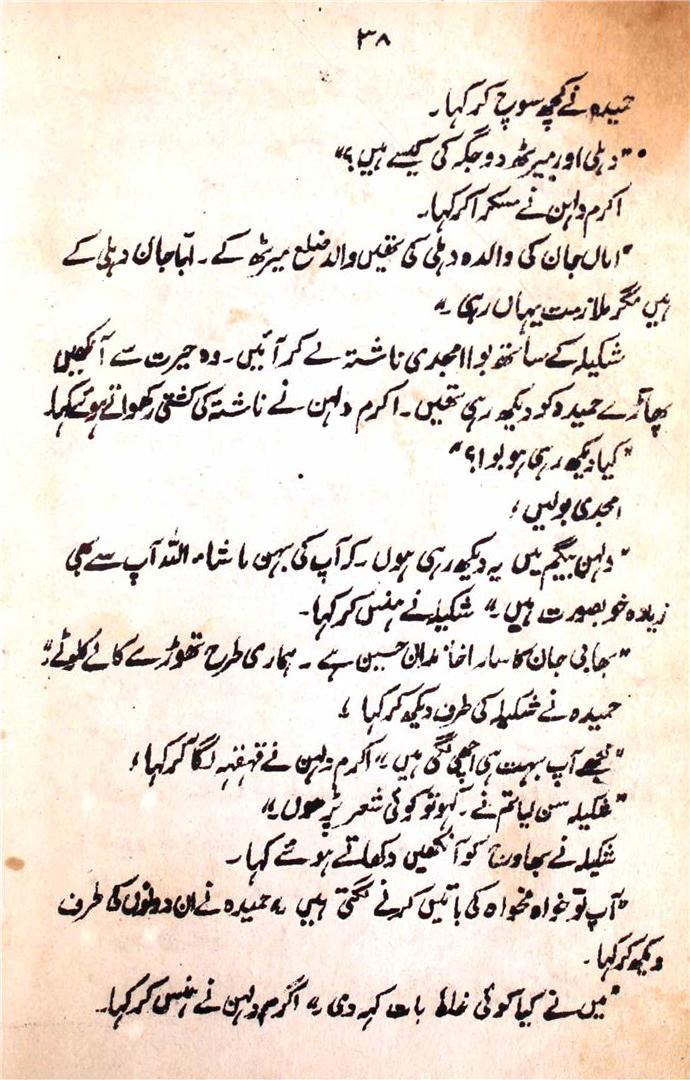 ۳۸
حمیدہ نے کچھ سوچ کر کہا۔
"دہلی اور میرٹھ دو جگہ کی کیسے ہیں؟"
اکرم دلہن نے مسکرا کر کہا۔
"اماں جان کی والدہ دہلی کی تھیں والد ضلع میرٹھ کے۔ ابّا جان دہلی کے
ہیں مگر ملازمت یہاں رہی۔"
شکیلہ کے ساتھ بوا امجدی ناشتہ لے کر آئیں۔ وہ حیرت سے آنکھیں
پھاڑے حمیدہ کو دیکھ رہی تھیں۔ اکرم دلہن نے ناشتہ کی کشتی رکھواتے ہوئے کہا۔
"کیا دیکھ رہی ہو بوا؟"
امجدی بولیں،
"دلہن بیگم میں یہ دیکھ رہی ہوں۔ کہ آپ کی بہن ماشاء اللہ آپ سے بھی
زیادہ خوبصورت ہیں۔" شکیلہ نے ہنس کر کہا۔
"بھابی جان کا سارا خاندان حسین ہے۔ ہماری طرح تھوڑے کالے کلوٹے۔"
حمیدہ نے شکیلہ کی طرف دیکھ کر کہا،
"مجھے آپ بہت ہی اچھی لگی ہیں" اکرم دلہن نے قہقہہ لگا کر کہا،
"شکیلہ سن لیا تم نے۔ کہو تو کوئی شعر پڑھوں۔"
شکیلہ نے بھاوج کو آنکھیں دکھاتے ہوئے کہا۔
"آپ تو خواہ مخواہ کی باتیں کرنے لگتی ہیں۔" حمیدہ نے ان دونوں کی طرف
دیکھ کر کہا۔
"میں نے کیا کوئی غلط بات کہہ دی۔" اکرم دلہن نے ہنس کر کہا۔